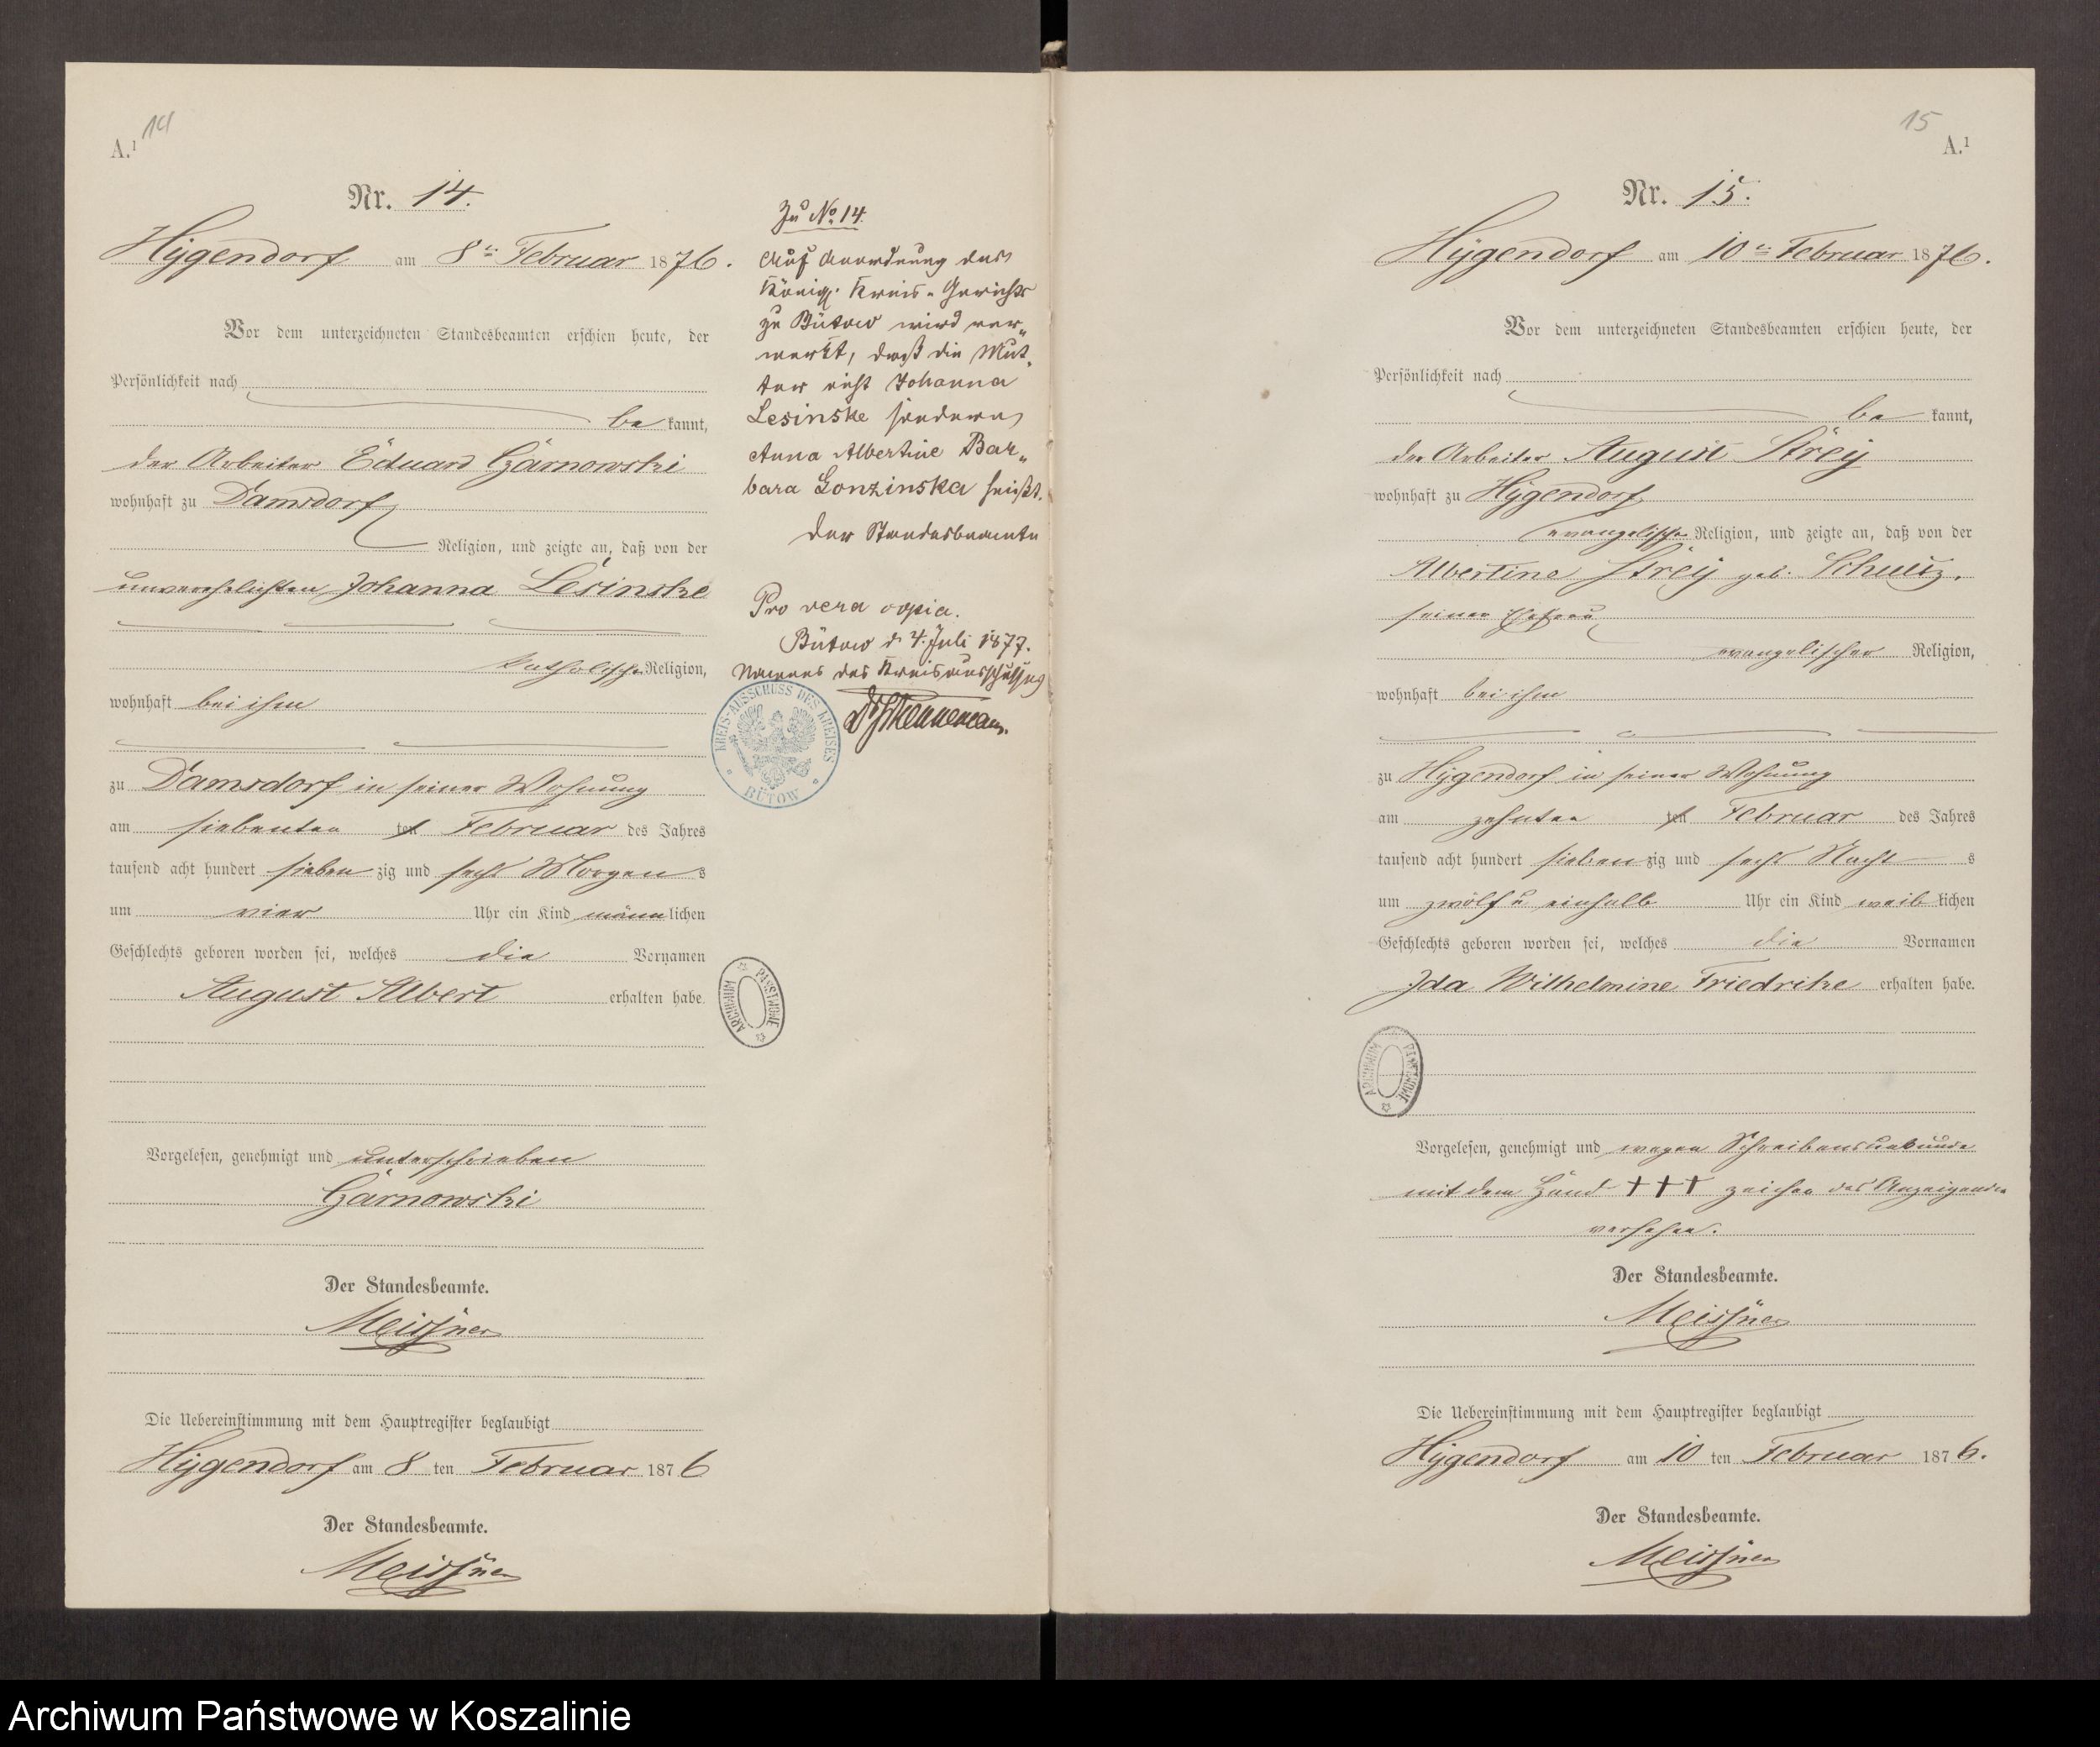 14
A.¹
Nr. 14.
Hygendorf am 8ten Februar 1876.
Vor dem unterzeichneten Standesbeamten erschien heute, der
Persönlichkeit nach
bekannt,
der Arbeiter Eduard Czarnowski
wohnhaft zu Damsdorf
Religion, und zeigte an, daß von der
unverehelichten Johanna Lesinske
katholischer Religion,
wohnhaft bei ihm
zu Damsdorf in seiner Wohnung
am siebenten ten Februar des Jahres
tausend acht hundert siebenzig und sechs Morgens
um vier Uhr ein Kind männlichen
Geschlechts geboren worden sei, welches die Vornamen
August Albert erhalten habe.
Vorgelesen, genehmigt und unterschrieben
Czarnowski
Der Standesbeamte.
Meissner
Die Uebereinstimmung mit dem Hauptregister beglaubigt
Hygendorf am 8 ten Februar 1876
Der Standesbeamte.
Meissner
Zu No. 14.
Auf Anordnung des
Königl. Kreis-Gerichts
zu Bütow wird ver-
merkt, daß die Mut-
ter nicht Johanna
Lesinske sondern
Anna Albertine Bar-
bara Lonzinska heißt.
Der Standesbeamte
Pro vera copia.
Bütow d. 4. Juli 1877.
Namens des Kreisausschusses
KREIS-AUSSCHUSS DES KREISES
BÜTOW
ARCHIWUM PAŃSTWOWE
15
A.¹
Nr. 15.
Hygendorf am 10ten Februar 1876.
Vor dem unterzeichneten Standesbeamten erschien heute, der
Persönlichkeit nach
bekannt,
der Arbeiter August Strey
wohnhaft zu Hygendorf
evangelischer Religion, und zeigte an, daß von der
Albertine Strey geb. Schulz,
seiner Ehefrau
evangelischer Religion,
wohnhaft bei ihm
zu Hygendorf in seiner Wohnung
am zehnten ten Februar des Jahres
tausend acht hundert siebenzig und sechs Nachts
um zwölf u. einhalb Uhr ein Kind weiblichen
Geschlechts geboren worden sei, welches die Vornamen
Ida Wilhelmine Friedrike erhalten habe.
ARCHIWUM PAŃSTWOWE
Vorgelesen, genehmigt und wegen Schreibensunkunde
mit dem Hand +++ zeichen des Anzeigenden
versehen.
Der Standesbeamte.
Meissner
Die Uebereinstimmung mit dem Hauptregister beglaubigt
Hygendorf am 10 ten Februar 1876.
Der Standesbeamte.
Meissner
Archiwum Państwowe w Koszalinie